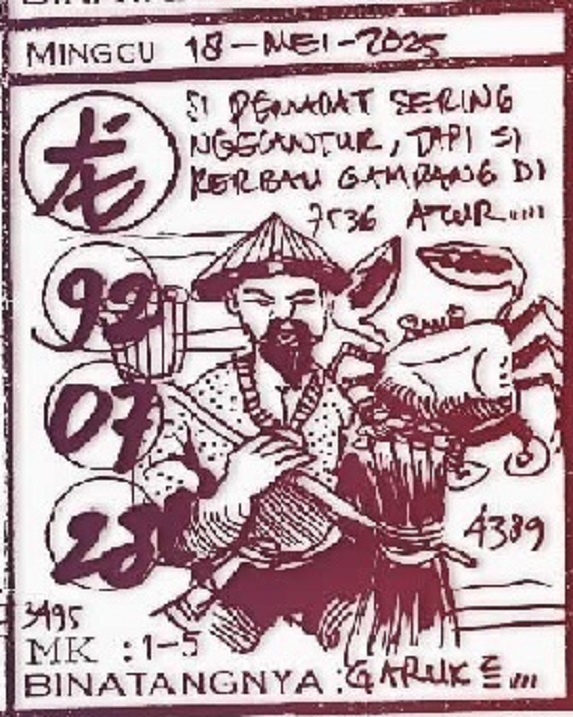 MINGGU 18-MEI-2025
龙
SI PEMADAT SERING
NGGLANTUR, TAPI SI
KERBAU GAMPANG DI
7536 ATUR....
92
07
28
4389
3495
MK : 1-5
BINATANGNYA : GARUK2 ...